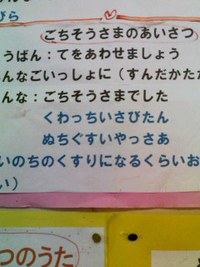 びら
ごちそうさまのあいさつ
うばん：てをあわせましょう
んなごいっしょに（すんだかた
んな：ごちそうさまでした
くわっちいさびたん
ぬちぐすいやっさあ
いのちのくすりになるくらいお
い）
つのうた